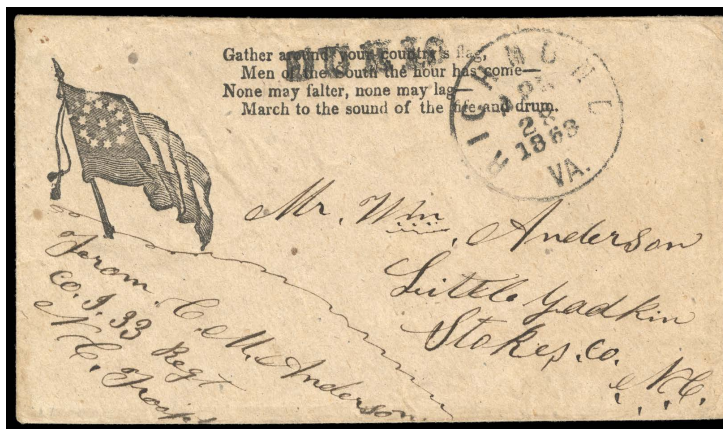 Gather around your country's flag,
Men of the South the hour has come—
None may falter, none may lag—
March to the sound of the fife and drum.
DUE 10
RICHMOND
APR
28
1863
VA.
Mr. Wm. Anderson
Little Yadkin
Stokes. co.
N.C.
From. C. M. Anderson
co. I. 33 Regt
N C. Troops